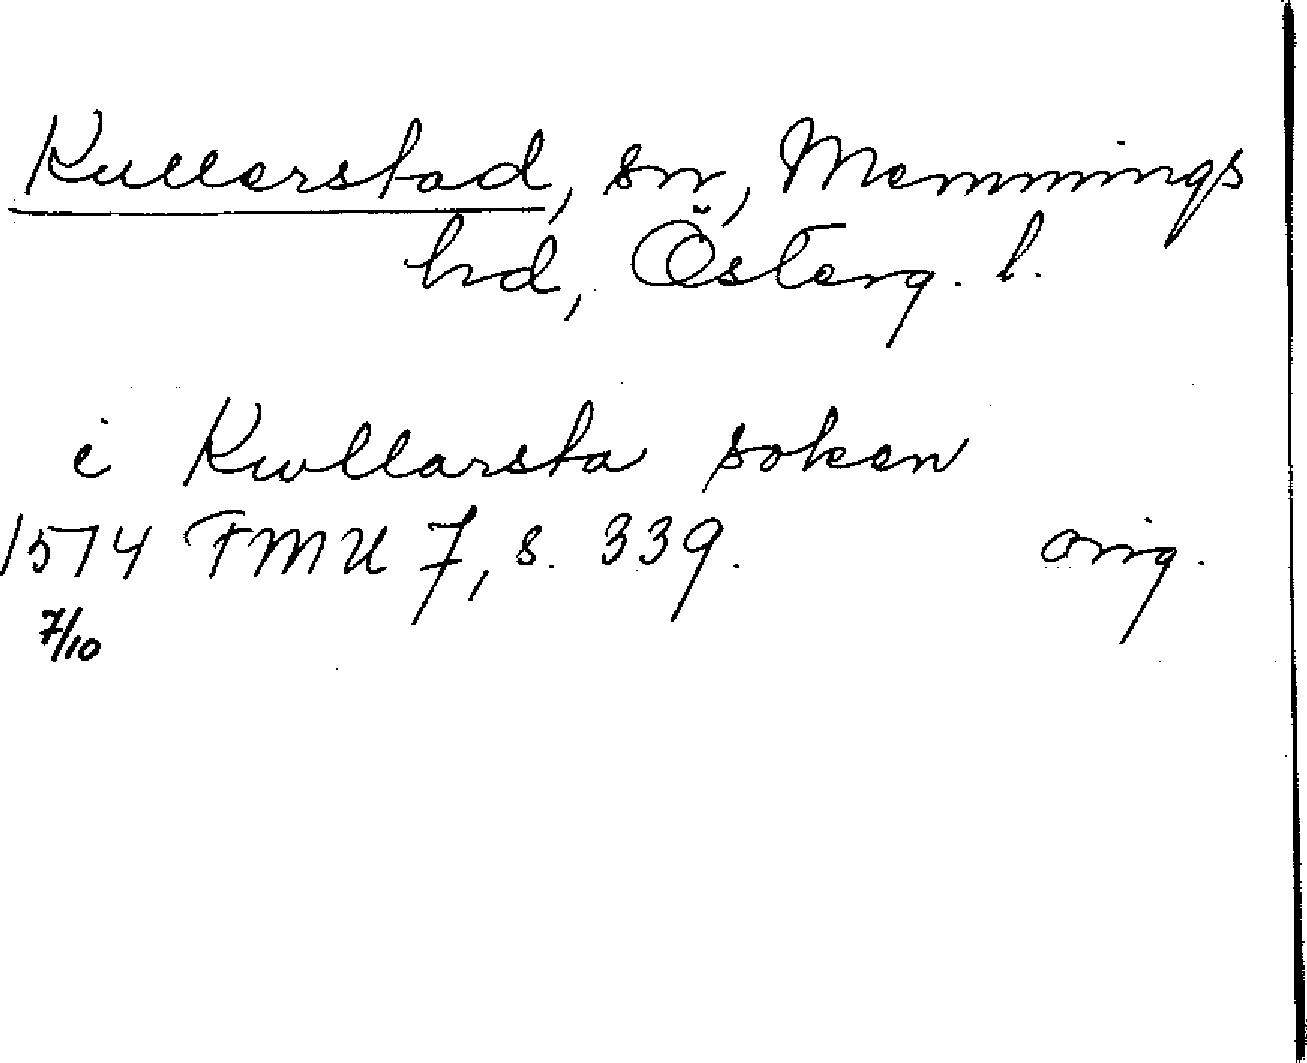 Kullerstad, sn, Memmings
hd, Österg. l.
i Kwllarsta soken
1514 FMU 7, s. 339. orig.
7/10